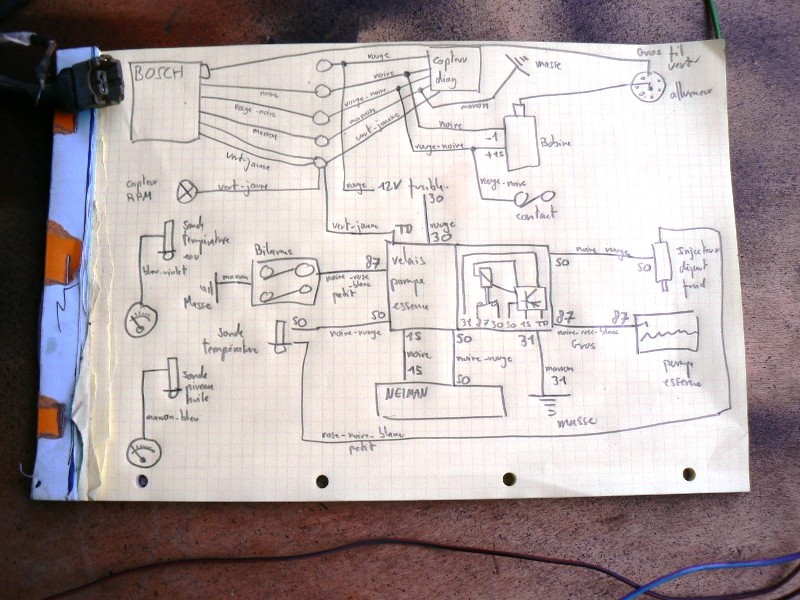 BOSCH
rouge
noire
rouge-noire
marron
vert-jaune
capteur
diag
masse
marron
Gros fil
vert
allumeur
noire
rouge-noire
marron
vert-jaune
noire
-1
rouge-noire
+15
Bobine
capteur
RPM
vert-jaune
rouge
12V fusible
30
rouge-noire
contact
vert-jaune
TD
rouge
30
Sonde
Température
eau
bleu-violet
Bilames
marron
Masse
87
noire-rose
blanc
petit
relais
pompe
essence
50
noire-rouge
50
Injecteur
départ
froid
Sonde
température
50
noire-rouge
50
31 87 30 50 15 TD
87
noire-rose-blanc
Gros
87
pompe
essence
15
noire
15
50
noire-rouge
50
31
marron
31
masse
NEIMAN
Sonde
niveau
huile
marron-bleu
rose-noire-blanc
petit